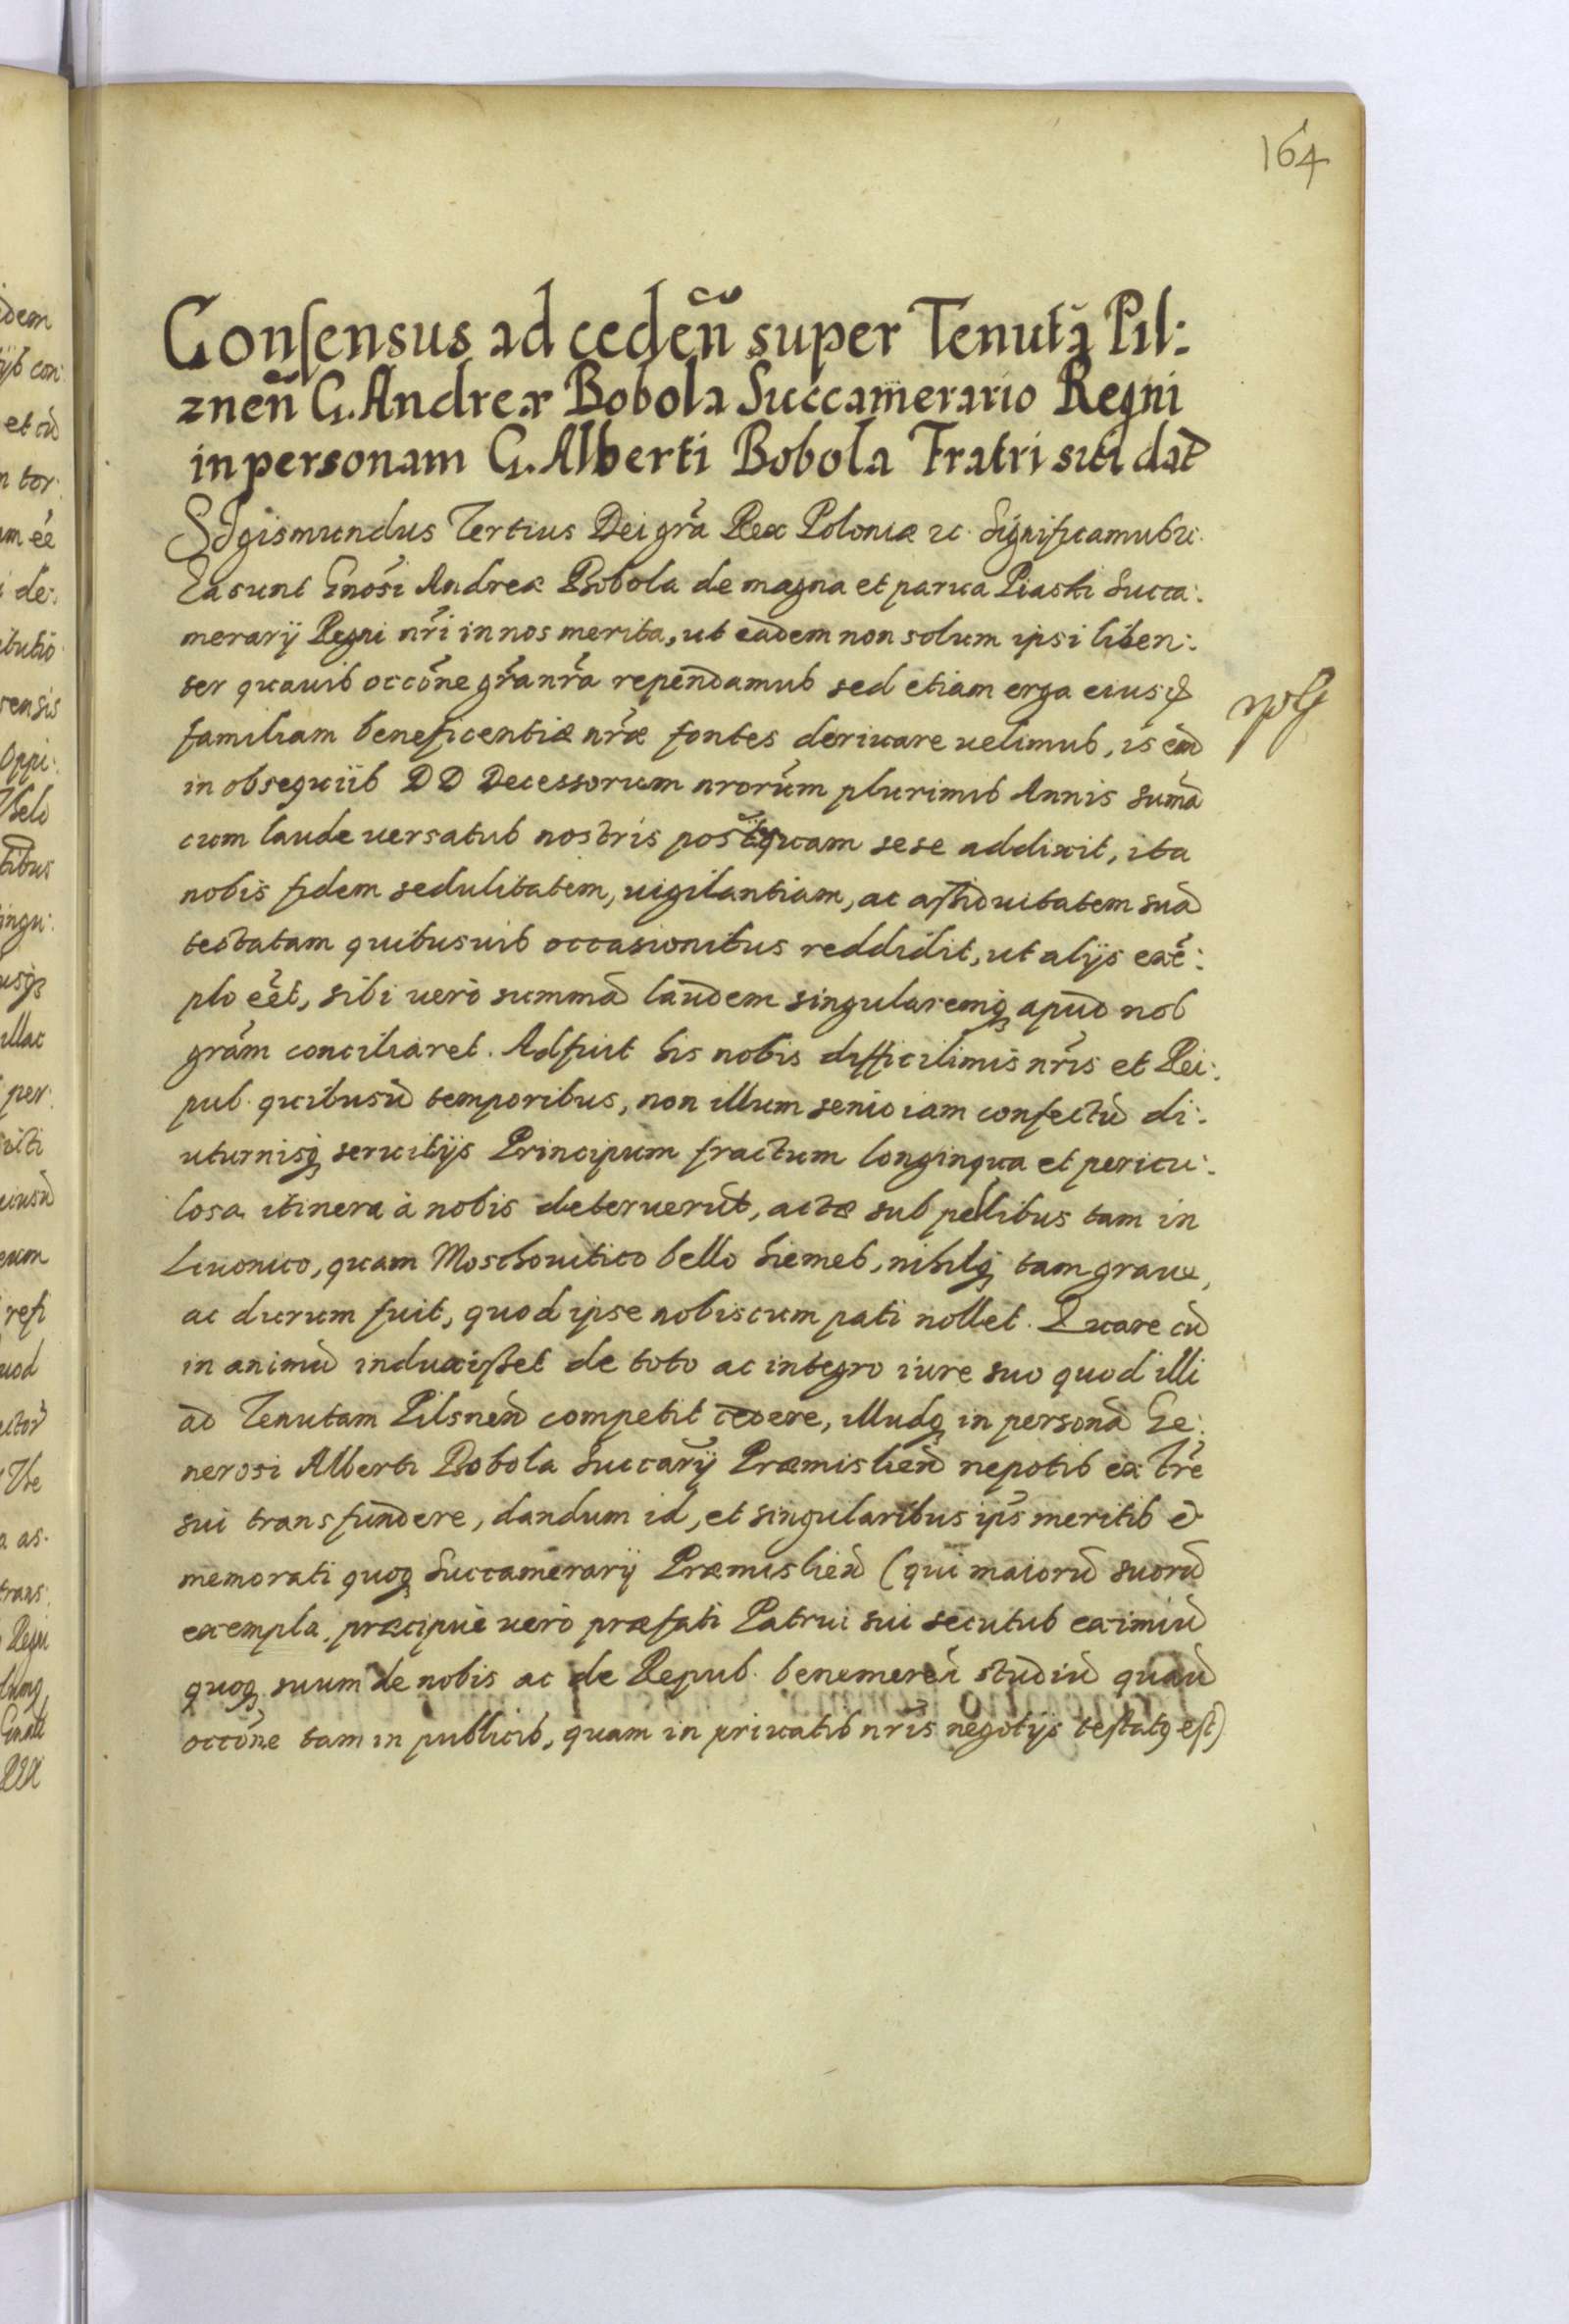 164
Consensus ad cedeñ super Tenutã Pil:
zneñ G. Andreæ Bobola Succamerario Regni
in personam G. Alberti Bobola Fratri sui dat
SIgismundus Tertius Dei grã Rex Poloniæ zc. Significamus zc.
Ea sunt Gnosi Andreæ Bobola de magna et parua Piaski Succa:
merarij Regni nri in nos merita, ut eadem non solum ipsi liben:
ter quauis occõne grã nrã rependamus sed etiam erga eius
familiam beneficentiæ nræ fontes deriuare uelimus, is eñ
in obsequiis DD Decessorum nrorum plurimis Annis sumã
cum laude uersatus nostris postquam sese addixit, ita
nobis fidem sedulitatem, uigilantiam, ac assiduitatem suã
testatam quibusuis occasionibus reddidit, ut alijs exẽ:
plo eet, sibi uerò summã laudem singularemq apud nos
gram conciliaret. Adfuit his nobis difficilimis nris et Rei:
pub. quibusuis temporibus, non illum senio iam confectũ di:
uturnisq seruitijs Principum fractum longinqua et pericu:
losa itinera à nobis deterruerũt, actæ sub pellibus tam in
Liuonico, quam Moschouitico bello hiemes, nihilq tam graue,
ac durum fuit, quod ipse nobiscum pati nollet. Quare cũ
in animũ induxisset de toto ac integro iure suo quod illi
ad Tenutam Pilsneñ competit cedere, illudq in personã Ge:
nerosi Alberti Bobola Succarij Præmislieñ nepotis ex frẽ
sui transfundere, dandum id, et singularibus ips meritis &
memorati quoq Succamerarij Præmislieñ (qui maiorũ suorũ
exempla, præcipuè uerò præfati Patrui sui secutus eximiũ
quoq suum de nobis ac de Repub. benemerẽi studiũ quauis
occõne tam in publicis, quam in priuatis nris negotijs testatq est)